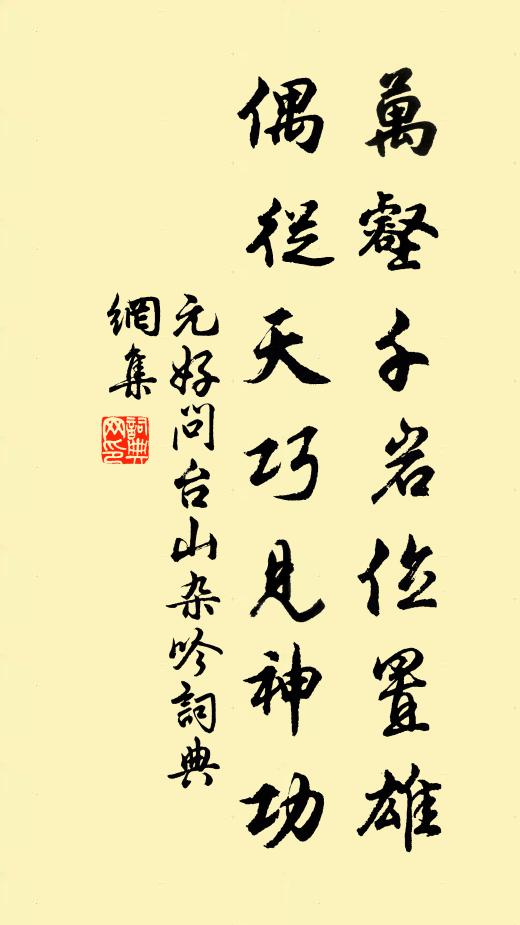 萬壑千岩位置雄
偶從天巧見神功
元好问台山杂吟詞典
網集
詞典
网印